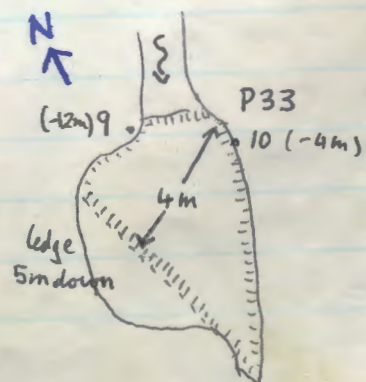 N
P33
(-12m) 9
10 (-4m)
4m
ledge
5m down